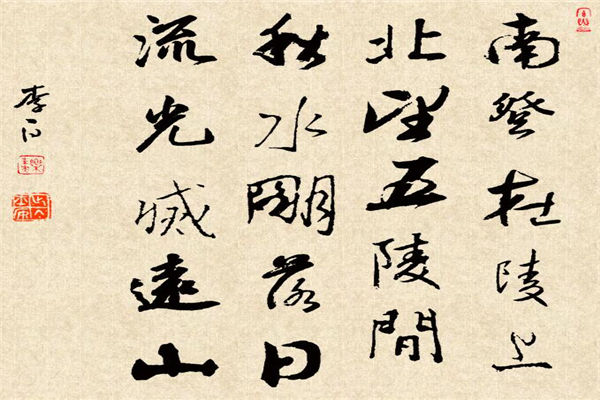 南登杜陵上
北望五陵間
秋水明落日
流光滅遠山
李白